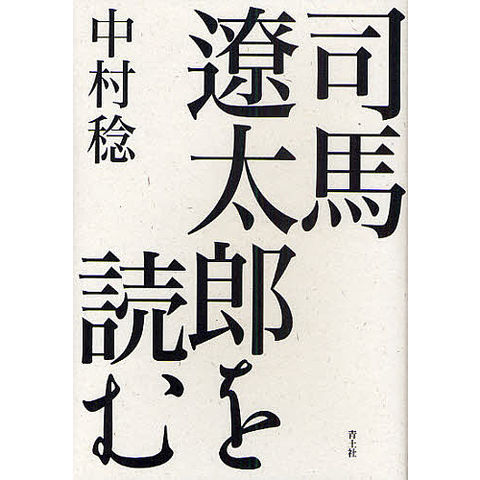 司馬
遼太郎を
読む
中村稔
青土社